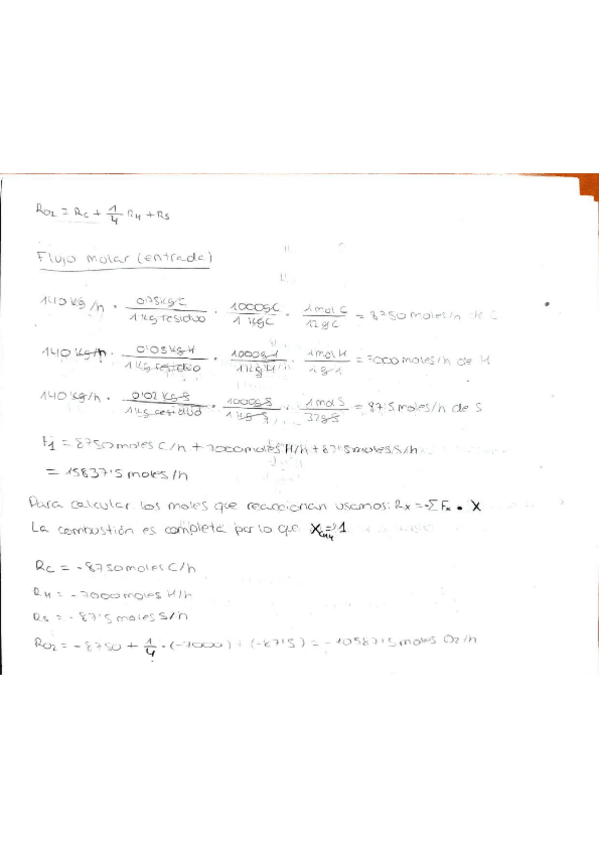 R_O2 = R_C + 1/4 R_H + R_S
Flujo molar (entrada)
140 kg/h · 0'75 kg C / 1 kg residuo · 1000 g C / 1 kg C · 1 mol C / 12 g C = 8750 moles/h de C
140 kg/h · 0'05 kg H / 1 kg residuo · 1000 g H / 1 kg H · 1 mol H / 1 g H = 7000 moles/h de H
140 kg/h · 0'02 kg S / 1 kg residuo · 1000 g S / 1 kg S · 1 mol S / 32 g S = 87'5 moles/h de S
F1 = 8750 moles C/h + 7000 moles H/h + 87'5 moles S/h
= 15837'5 moles/h
Para calcular los moles que reaccionan usamos: R_x = -Σ F_x • X
La combustión es completa por lo que X_CH4 = 1
R_C = -8750 moles C/h
R_H = -7000 moles H/h
R_S = -87'5 moles S/h
R_O2 = -8750 + 1/4 · (-7000) + (-87'5) = -10587'5 moles O2/h